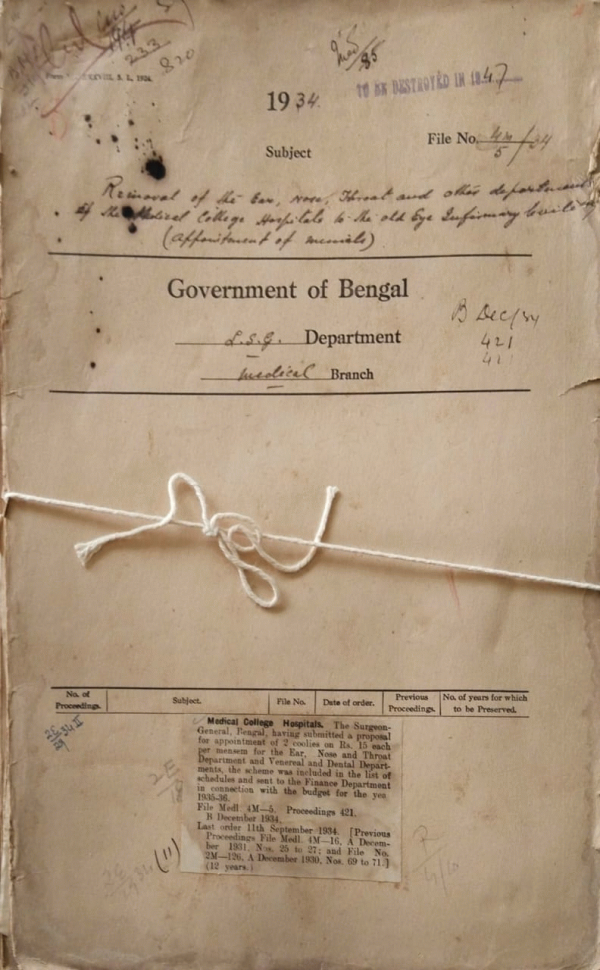 233
820
Med/35
TO BE DESTROYED IN 1947
1934.
File No. 4M/5/34
Subject
Removal of the Ear, Nose, Throat and other departments
of the Medical College Hospitals to the old Eye Infirmary building
(Appointment of menials)
Government of Bengal
L.S.G. Department
B Dec/34
421
421
Medical Branch
No. of Proceedings. Subject. File No. Date of order. Previous Proceedings. No. of years for which to be Preserved.
Medical College Hospitals. The Surgeon-
General, Bengal, having submitted a proposal
for appointment of 2 coolies on Rs. 15 each
per mensem for the Ear, Nose and Throat
Department and Venereal and Dental Depart-
ments, the scheme was included in the list of
schedules and sent to the Finance Department
in connection with the budget for the yea
1935-36.
File Medl. 4M—5. Proceedings 421,
B December 1934.
Last order 11th September 1934. [Previous
Proceedings File Medl. 4M—16, A Decem-
ber 1931, Nos. 25 to 27; and File No.
2M—126, A December 1930, Nos. 69 to 71.]
(12 years.)
(11)